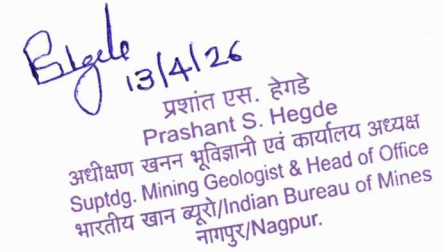 Hegde
13/4/26
प्रशांत एस. हेगडे
Prashant S. Hegde
अधीक्षण खनन भूविज्ञानी एवं कार्यालय अध्यक्ष
Suptdg. Mining Geologist & Head of Office
भारतीय खान ब्यूरो/Indian Bureau of Mines
नागपुर/Nagpur.